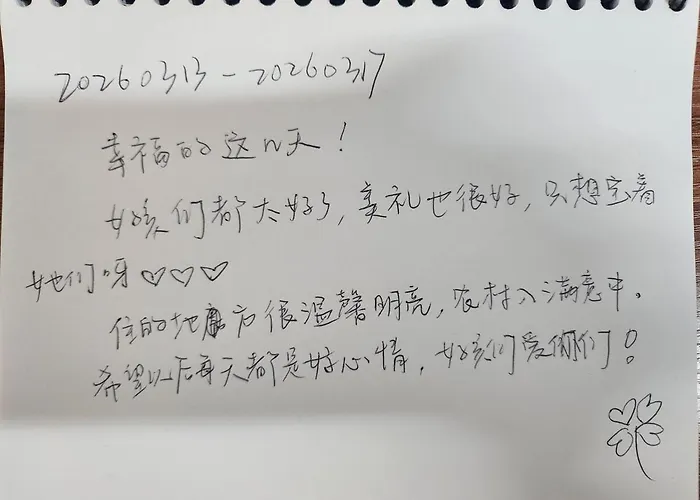 20260313-20260317
幸福的这几天！
女孩们都太好了，美礼也很好，只想宝着
她们呀♡♡♡
住的地方很温馨明亮，农村入满意中。
希望以后每天都是好心情，女孩们爱你们！